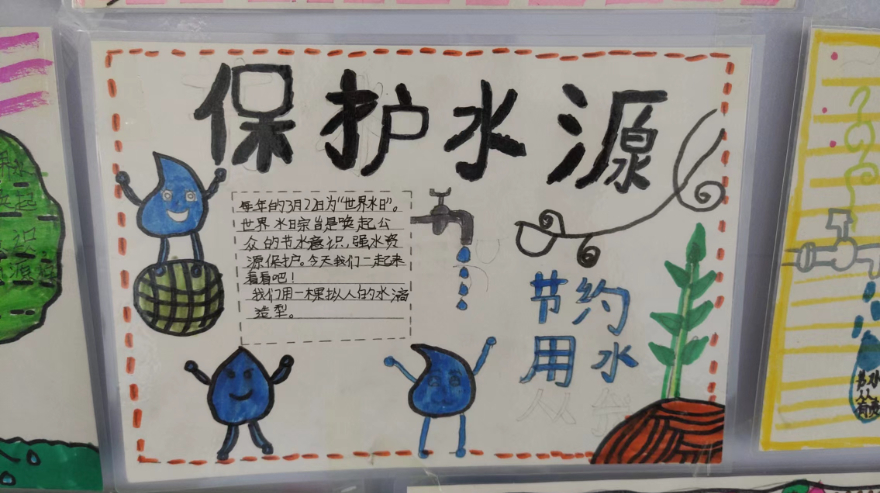 保护水源
每年的3月22日为“世界水日”。
世界水日宗旨是唤起公
众的节水意识，强水资
源保护。今天我们一起来
看看吧！
我们用一棵拟人的水滴
造型。
节约
用水